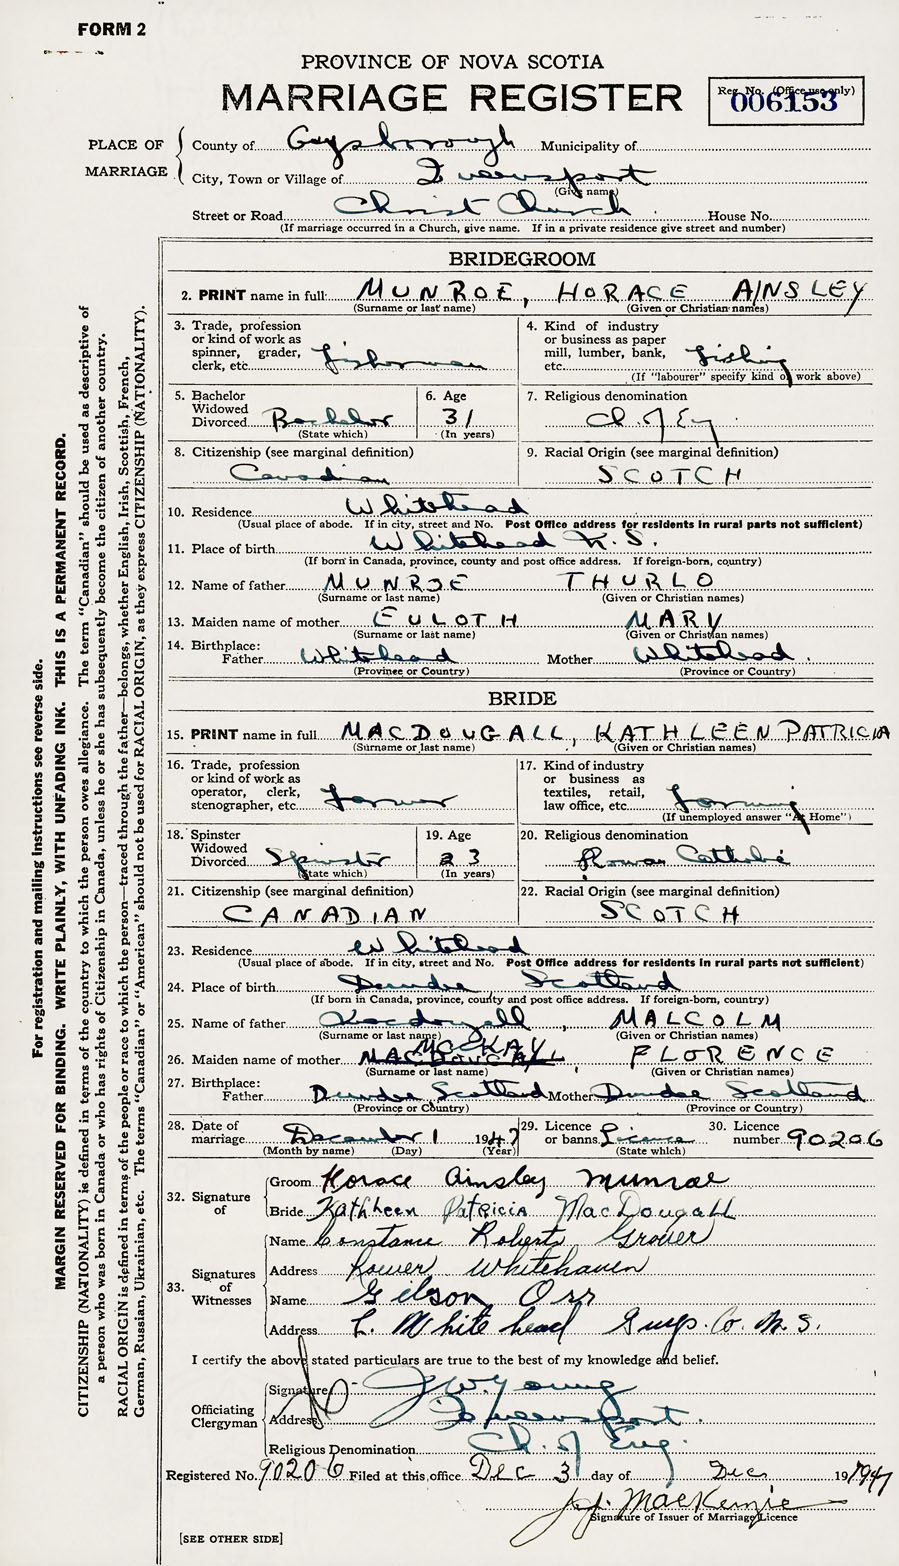 FORM 2
PROVINCE OF NOVA SCOTIA
MARRIAGE REGISTER
Reg. No. (Office use only)
006153
PLACE OF MARRIAGE
County of Guysborough Municipality of
City, Town or Village of Queensport
(Give name)
Street or Road Christ Church House No.
(If marriage occurred in a Church, give name. If in a private residence give street and number)
BRIDEGROOM
2. PRINT name in full MUNROE, HORACE AINSLEY
(Surname or last name) (Given or Christian names)
3. Trade, profession or kind of work as spinner, grader, clerk, etc. fisherman
4. Kind of industry or business as paper mill, lumber, bank, etc. fishing
(If "labourer" specify kind of work above)
5. Bachelor Widowed Divorced Bachelor
(State which)
6. Age 31
(In years)
7. Religious denomination Ch. of Eng.
8. Citizenship (see marginal definition) Canadian
9. Racial Origin (see marginal definition) SCOTCH
10. Residence Whitehead
(Usual place of abode. If in city, street and No. Post Office address for residents in rural parts not sufficient)
11. Place of birth Whitehead N.S.
(If born in Canada, province, county and post office address. If foreign-born, country)
12. Name of father MUNROE THURLO
(Surname or last name) (Given or Christian names)
13. Maiden name of mother EULOTH MARY
(Surname or last name) (Given or Christian names)
14. Birthplace: Father Whitehead Mother Whitehead.
(Province or Country) (Province or Country)
BRIDE
15. PRINT name in full MACDOUGALL, KATHLEEN PATRICIA
(Surname or last name) (Given or Christian names)
16. Trade, profession or kind of work as operator, clerk, stenographer, etc. farmer
17. Kind of industry or business as textiles, retail, law office, etc. farming
(If unemployed answer "At Home")
18. Spinster Widowed Divorced Spinster
(State which)
19. Age 23
(In years)
20. Religious denomination Roman Catholic
21. Citizenship (see marginal definition) CANADIAN
22. Racial Origin (see marginal definition) SCOTCH
23. Residence Whitehead
(Usual place of abode. If in city, street and No. Post Office address for residents in rural parts not sufficient)
24. Place of birth Dundee Scotland
(If born in Canada, province, county and post office address. If foreign-born, country)
25. Name of father Macdougall, MALCOLM
(Surname or last name) (Given or Christian names)
McKAY
26. Maiden name of mother MACDOUGALL FLORENCE
(Surname or last name) (Given or Christian names)
27. Birthplace: Father Dundee Scotland Mother Dundee Scotland
(Province or Country) (Province or Country)
28. Date of marriage December 1 1947
(Month by name) (Day) (Year)
29. Licence or banns Licence
(State which)
30. Licence number 90206
32. Signature of
Groom Horace Ainsley Munroe
Bride Kathleen Patricia MacDougall
33. Signatures of Witnesses
Name Constance Roberts Grover
Address Lower Whitehaven
Name Gilson Orr
Address L. White head Guys. Co. N.S.
I certify the above stated particulars are true to the best of my knowledge and belief.
Officiating Clergyman
Signature J.W. Young
Address Queensport.
Religious Denomination Ch. of Eng.
Registered No. 90206 Filed at this office Dec 3 day of Dec 19 1947
J.J. MacKenzie
Signature of Issuer of Marriage Licence
[SEE OTHER SIDE]
For registration and mailing instructions see reverse side.
MARGIN RESERVED FOR BINDING. WRITE PLAINLY, WITH UNFADING INK. THIS IS A PERMANENT RECORD.
CITIZENSHIP (NATIONALITY) is defined in terms of the country to which the person owes allegiance. The term "Canadian" should be used as descriptive of
a person who was born in Canada or who has rights of Citizenship in Canada, unless he or she has subsequently become the citizen of another country.
RACIAL ORIGIN is defined in terms of the people or race to which the person—traced through the father—belongs, whether English, Irish, Scottish, French,
German, Russian, Ukrainian, etc. The terms "Canadian" or "American" should not be used for RACIAL ORIGIN, as they express CITIZENSHIP (NATIONALITY).